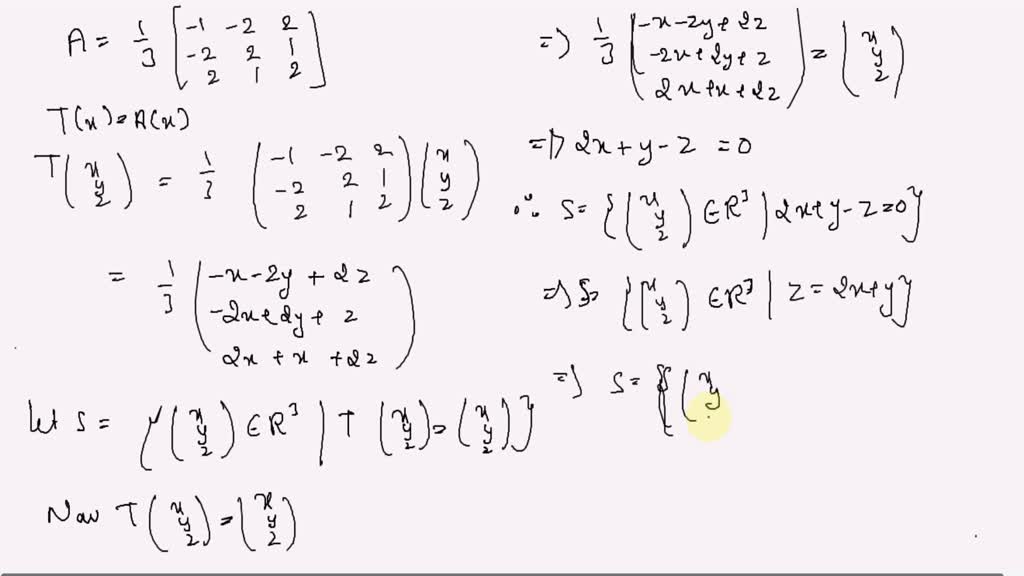 A = 1/3 [ -1 -2 2
-2 2 1
2 1 2 ]
T(x) = A(x)
T ( x
y
z ) = 1/3 ( -1 -2 2
-2 2 1
2 1 2 ) ( x
y
z )
= 1/3 ( -x - 2y + 2z
-2x + 2y + z
2x + x + 2z )
Let S = { ( x
y
z ) ∈ R³ | T ( x
y
z ) = ( x
y
z ) }
Now T ( x
y
z ) = ( x
y
z )
=) 1/3 ( -x - 2y + 2z
-2x + 2y + z
2x + x + 2z ) = ( x
y
z )
=) 2x + y - z = 0
∴ S = { ( x
y
z ) ∈ R³ | 2x + y - z = 0 }
=) S = { ( x
y
z ) ∈ R³ | z = 2x + y }
=) S = { ( x
y